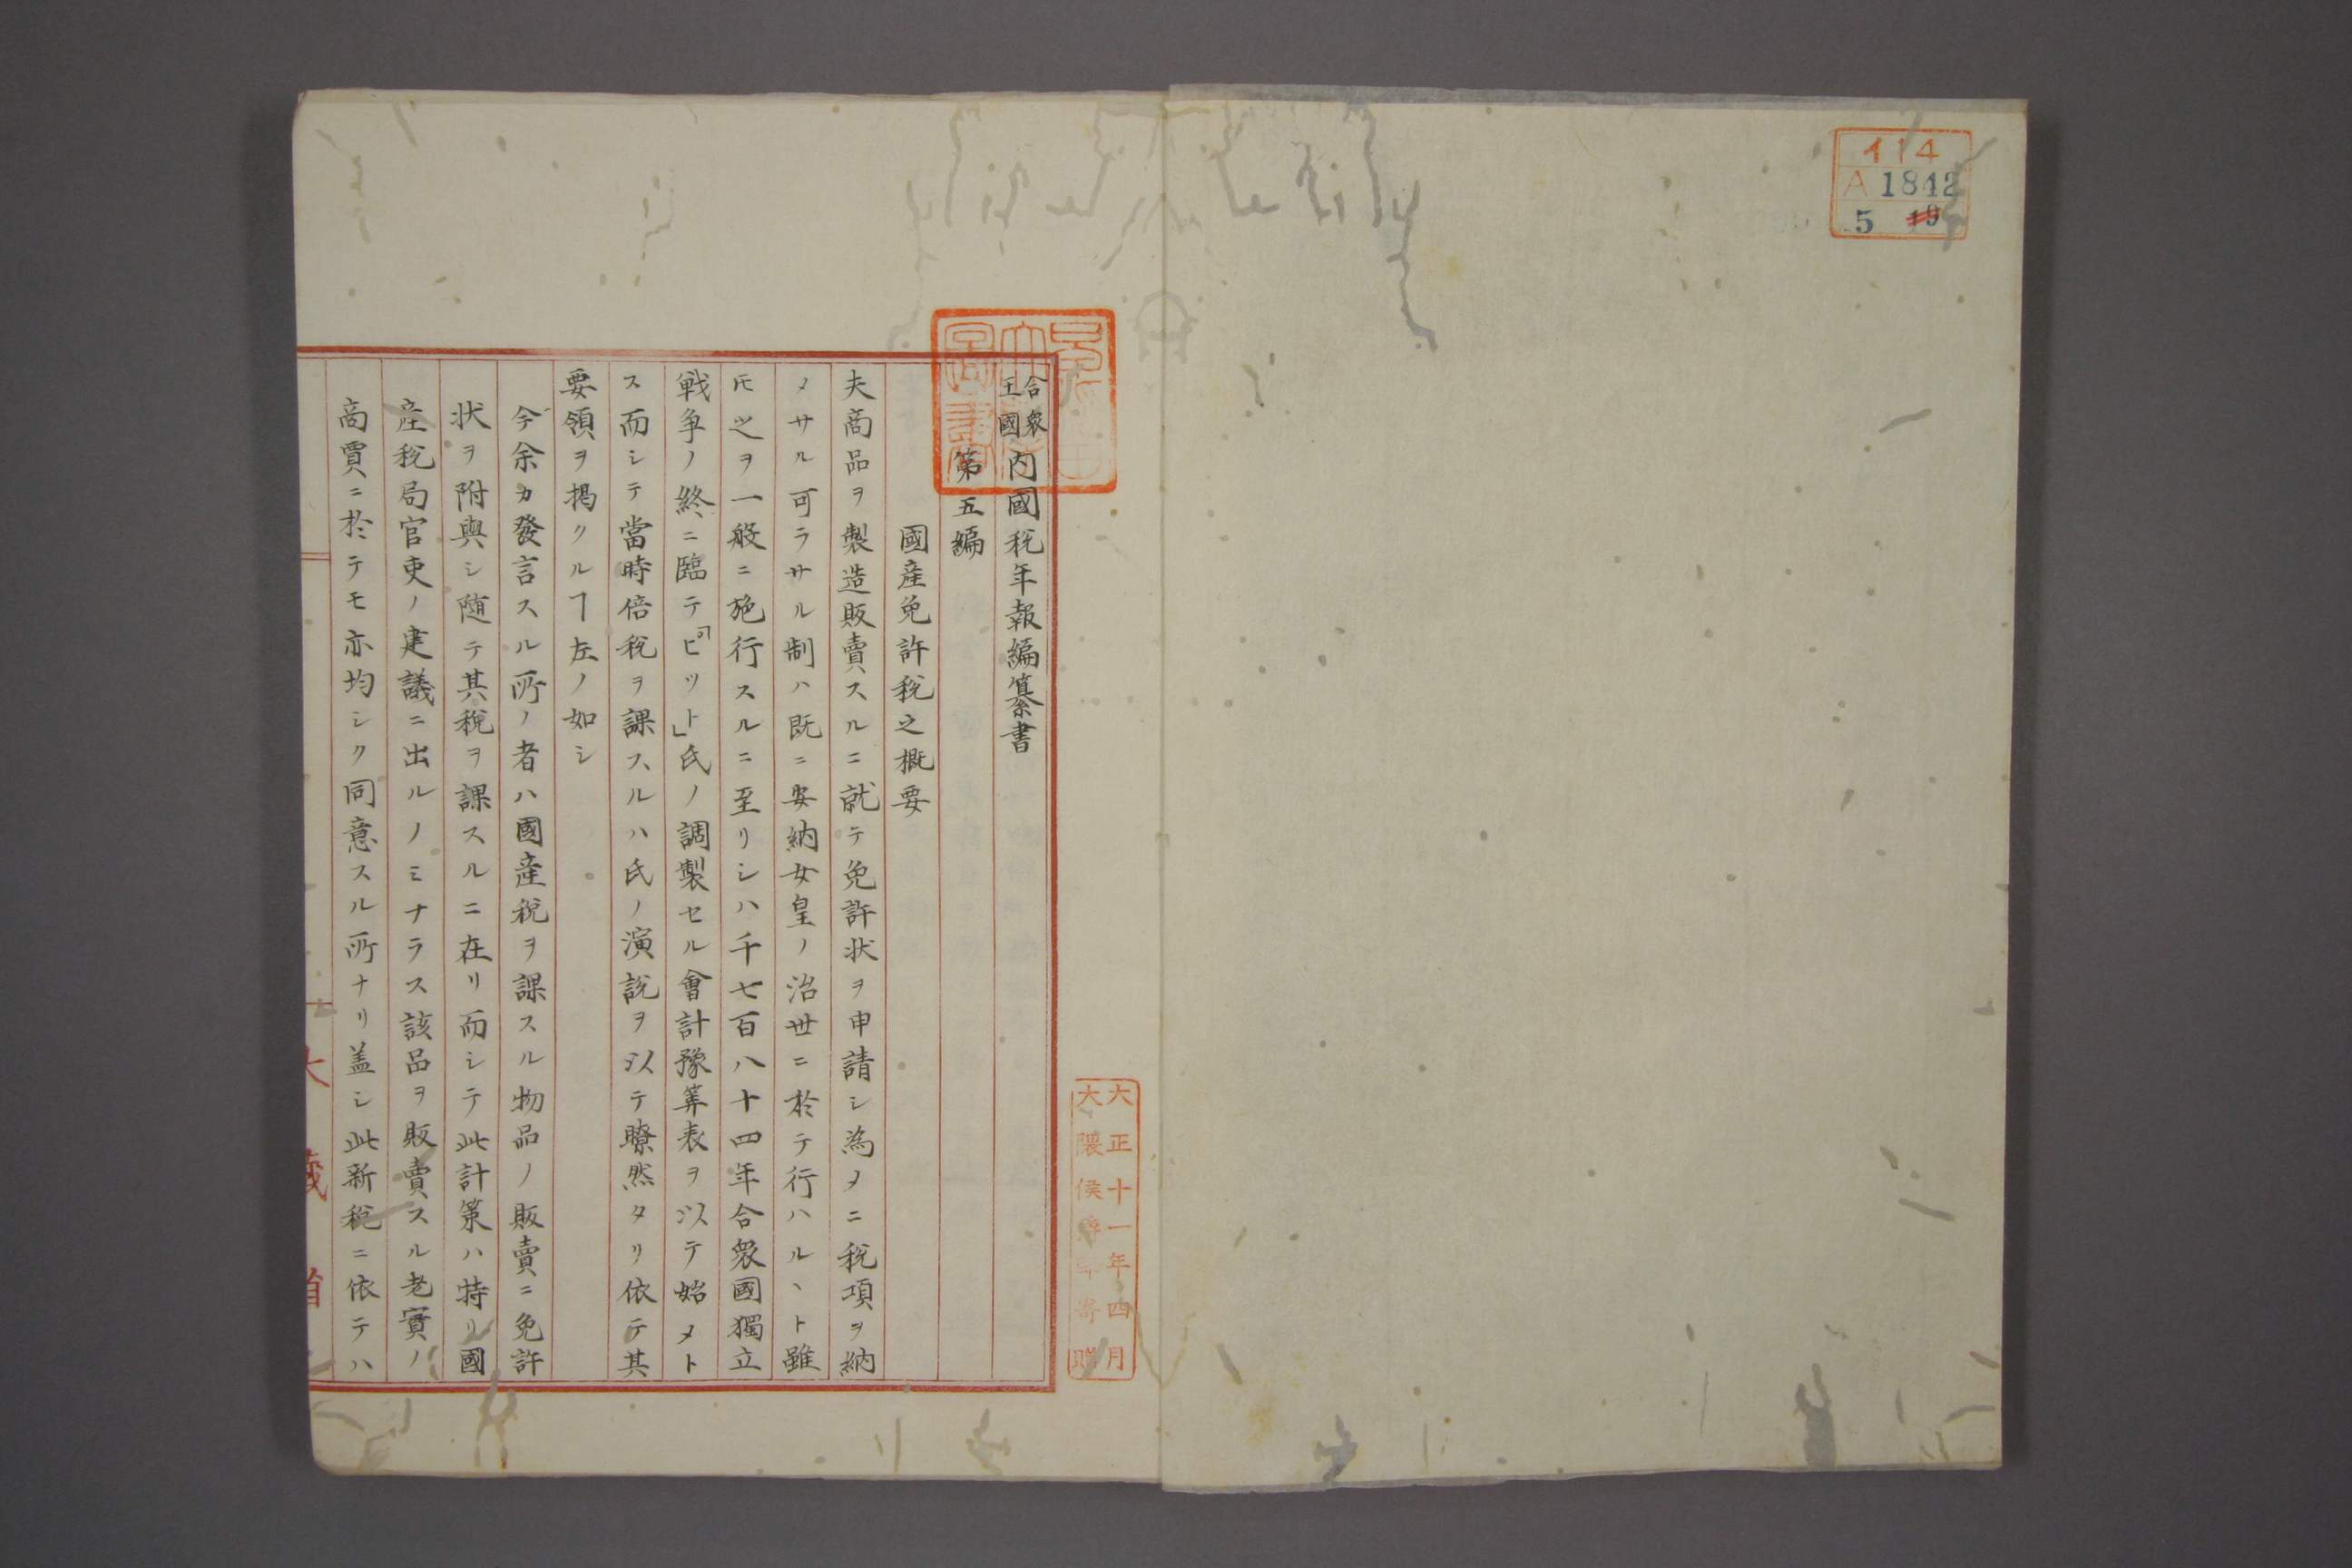 イ14
A 1842
5 19
合衆
王國
内國税年報編纂書
第五編
國産免許税之概要
夫商品ヲ製造販賣スルニ就テ免許状ヲ申請シ為メニ税項ヲ納
メサル可ラサル制ハ既ニ安納女皇ノ治世ニ於テ行ハルヽト雖
𪜈之ヲ一般ニ施行スルニ至リシハ千七百八十四年合衆國獨立
戦争ノ終ニ臨テ「ピット」氏ノ調製セル會計豫筭表ヲ以テ始メト
ス而シテ當時倍税ヲ課スルハ氏ノ演説ヲ以テ瞭然タリ依テ其
要領ヲ掲クルヿ左ノ如シ
今余カ發言スル所ノ者ハ國産税ヲ課スル物品ノ販賣ニ免許
状ヲ附與シ随テ其税ヲ課スルニ在リ而シテ此計策ハ特リ國
産税局官吏ノ建議ニ出ルノミナラス該品ヲ販賣スル老實ノ
商賈ニ於テモ亦均シク同意スル所ナリ盖シ此新税ニ依テハ
大藏省
大正十一年四月
大隈侯爵家寄贈